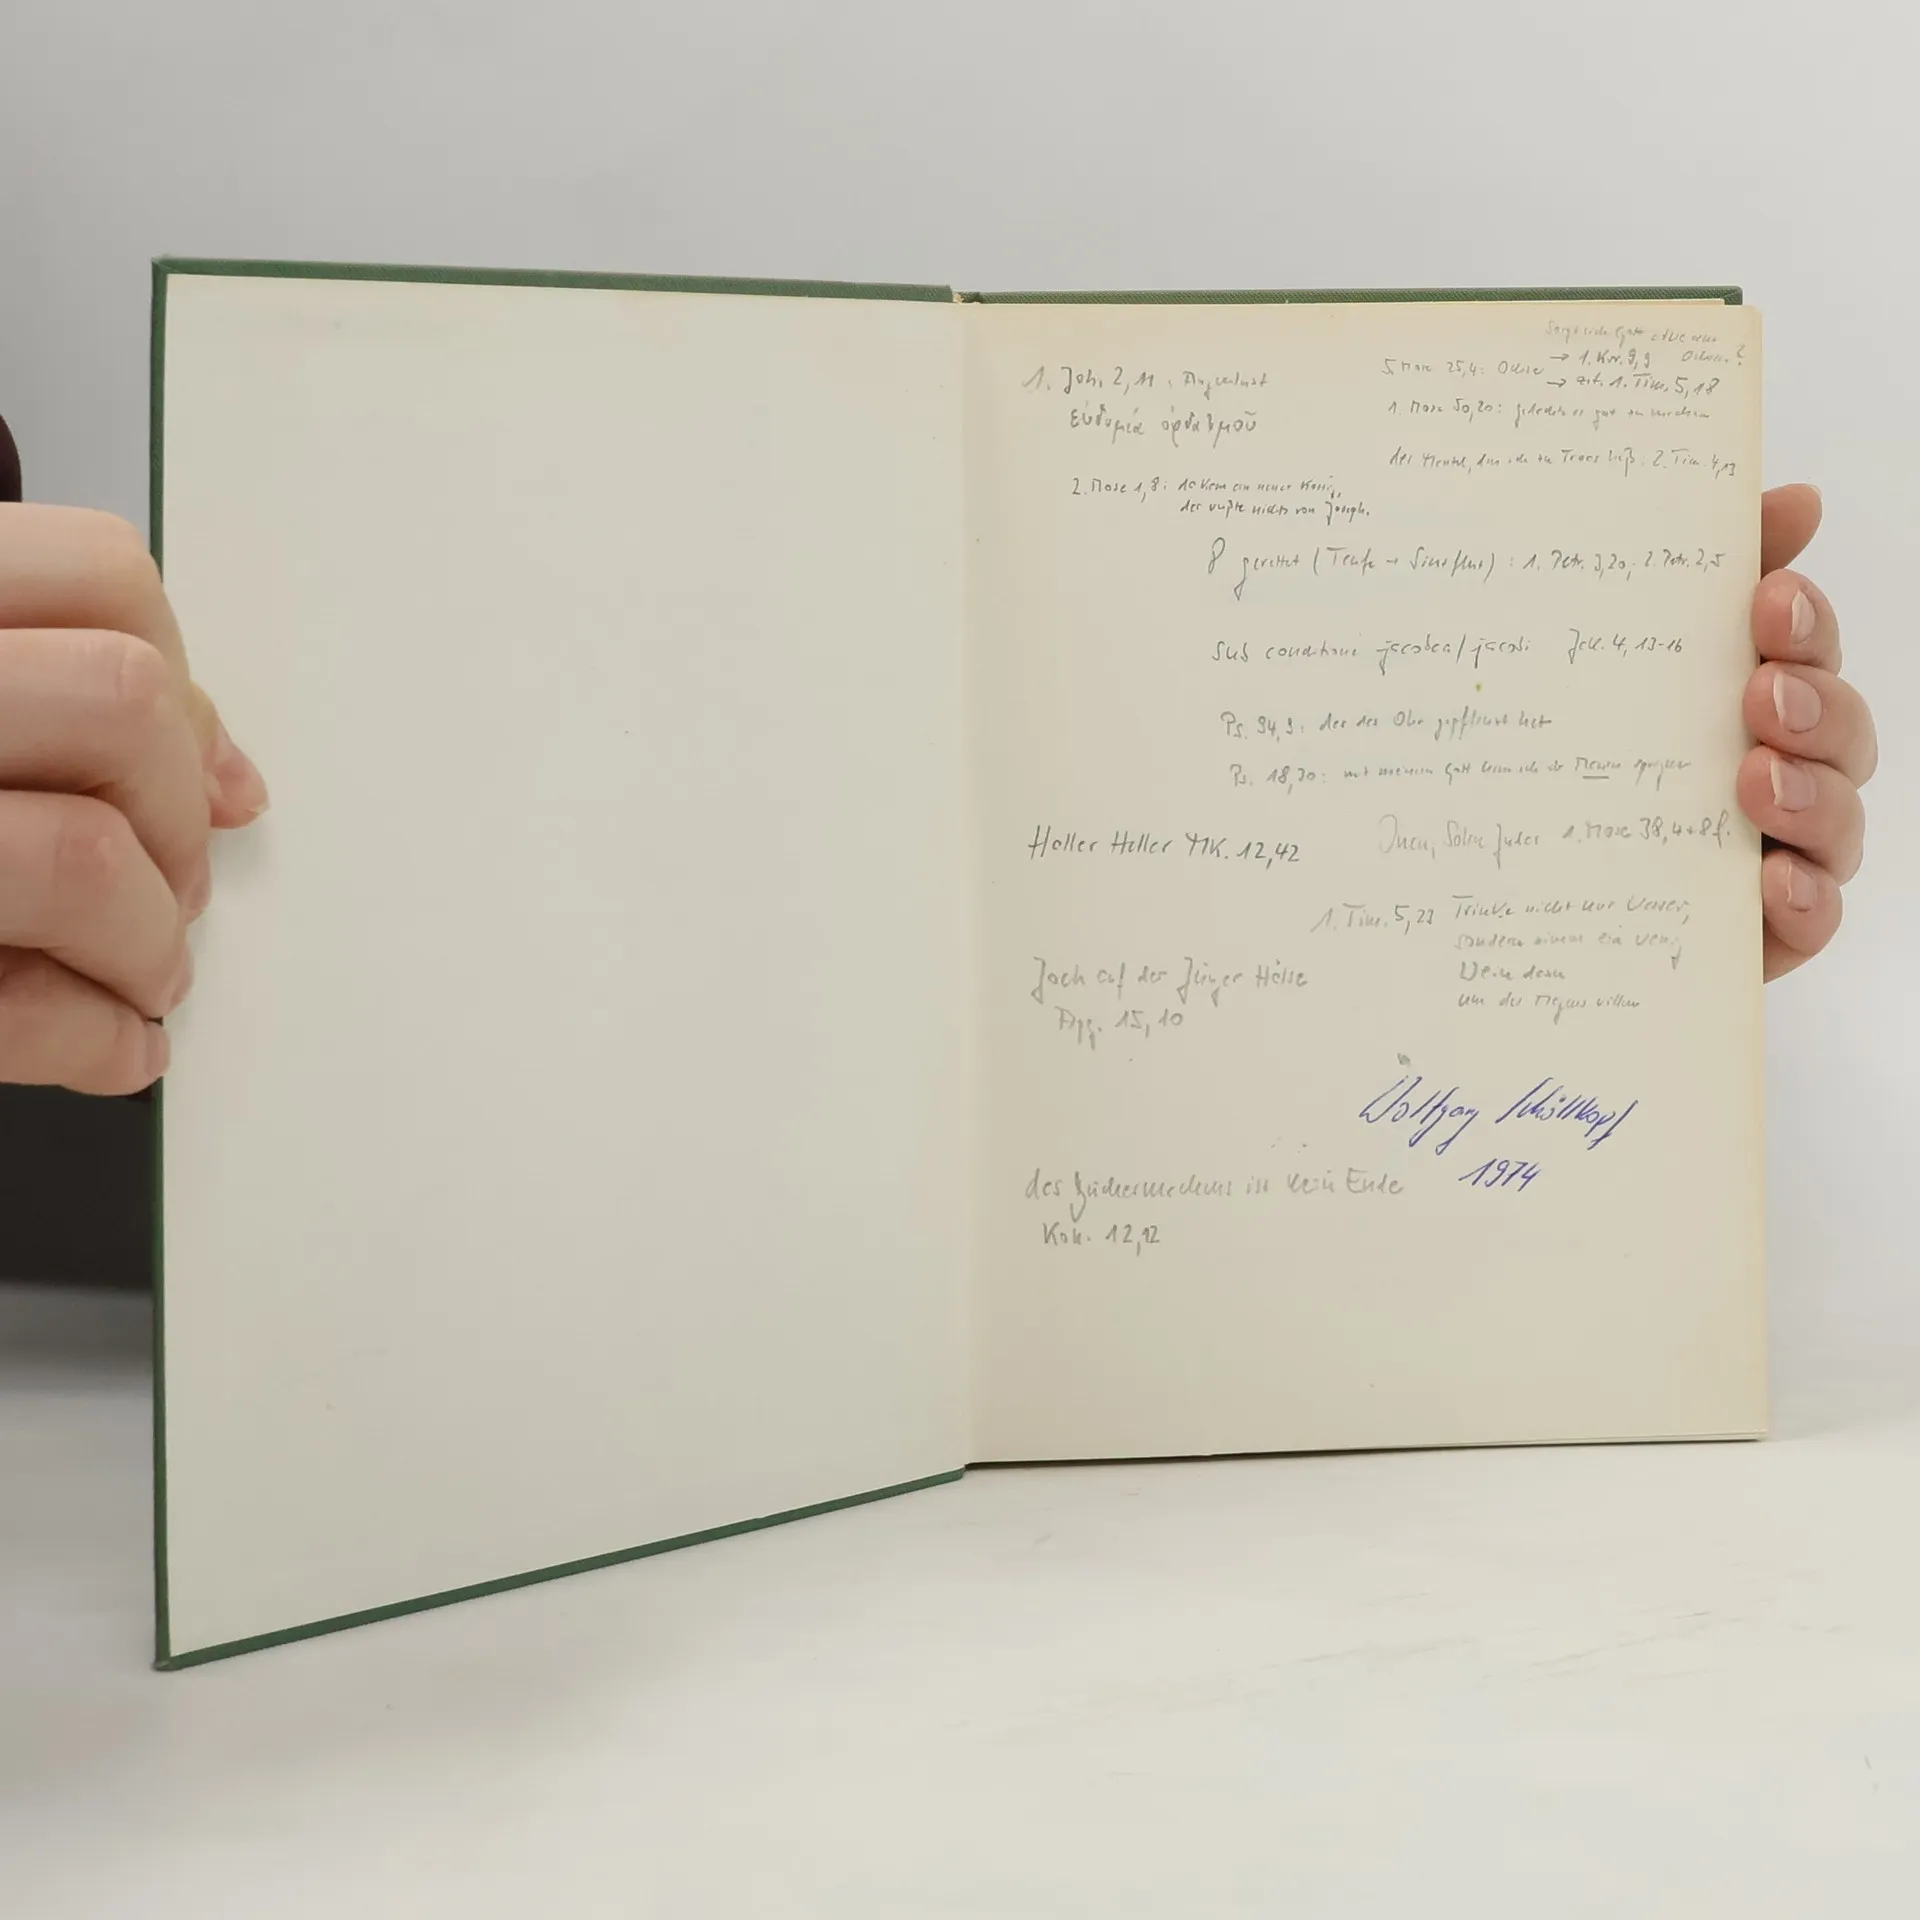 Sorgt sich Gott etwa um
5. Mose 25,4: Ochse → 1. Kor. 9,9 Ochsen?
→ zit. 1. Tim. 5,18
1. Joh. 2,11: Augenlust
1. Mose 50,20: gedachte es gut zu machen
der Mantel, den ich zu Troas ließ: 2. Tim. 4,13
2. Mose 1,8: da kam ein neuer König,
der wußte nichts von Joseph.
8 gerettet (Taufe → Sintflut): 1. Petr. 3,20; 2. Petr. 2,5
sub conditione jacobea/jacobi Jak. 4, 13-16
Ps. 94,9: der das Ohr gepflanzt hat
Ps. 18,30: mit meinem Gott kann ich die Mauern springen
Heller Heller MK. 12,42
Söhne Judas 1. Mose 38,4+8f.
1. Tim. 5,23 Trinke nicht nur Wasser,
sondern nimm ein wenig
Wein dazu
um des Magens willen
Joch auf der Jünger Hälse
Apg. 15,10
Wolfgang Schöllkopf
1974
des Büchermachens ist kein Ende
Koh. 12,12